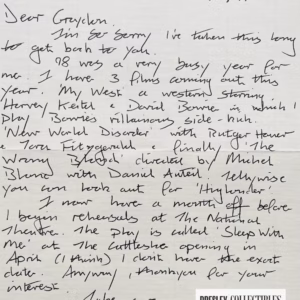 Dear Graydon.
I'm so sorry I've taken this long
to get back to you.
98 was a very busy year for
me. I have 3 films coming out this
year. My West a western starring
Harvey Keitel & David Bowie in which I
play Bowies villainous side-kick.
'New World Disorder' with Rutger Hauer
& Tara Fitzgerald finally 'The
Wrong Blonde' directed by Michel
Blanc with Daniel Auteil. Tellywise
you can look out for 'Highlander'
I now have a month off before
I begin rehearsals at The National
Theatre. The play is called 'Sleep With
Me' at The Cottesloe opening in
April (I think) I don't have the exact
date. Anyway, thankyou for your
interest.
PROPLEY COLLECTIBLES